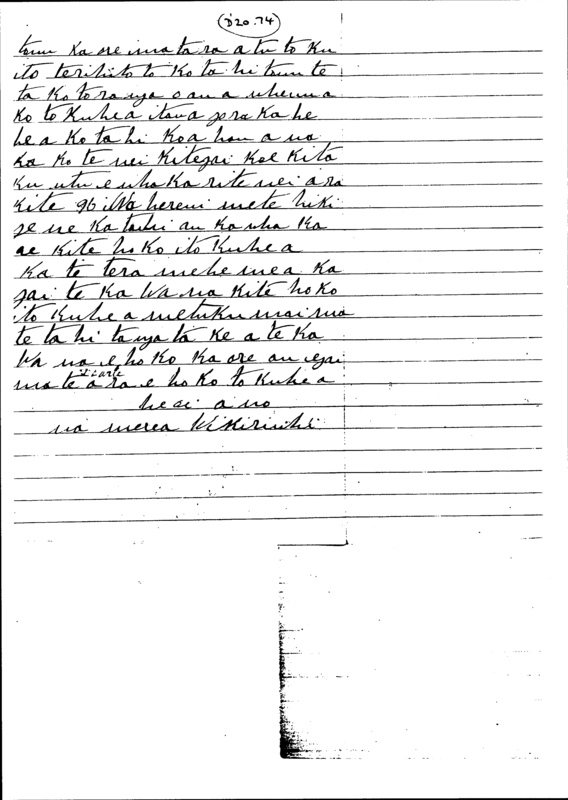 (D20.74)
tonu Ka ore ima ta ra a tu to Ku
ito terihito to Ko ta hi tonu te
ta Ko to ra nga o au a uhenua
Ko to Kuhe a itaua pra Ka he
he a Ko ta hi Koa hou a na
Ka Ko te nei Kitepai Koe Kita
Ku utu e uha Ka rite nei a ra
Kite 96 hereni me te hiki
pe ne Ka tahi au Ka uha Ka
ae Kite ho Ko ito Kuhe a
Ka ti tera mehe mea Ka
pai te Ka Wa na Kite ho Ko
ito Kuhe a me tuku mai ma
te ta hi ta nga ta Ke a te Ka
Wa na e ho Ko Ka ore au epai
ma te a ra e ho Ko to Kuhe a
heoi a no
na merea Wikiriwhi